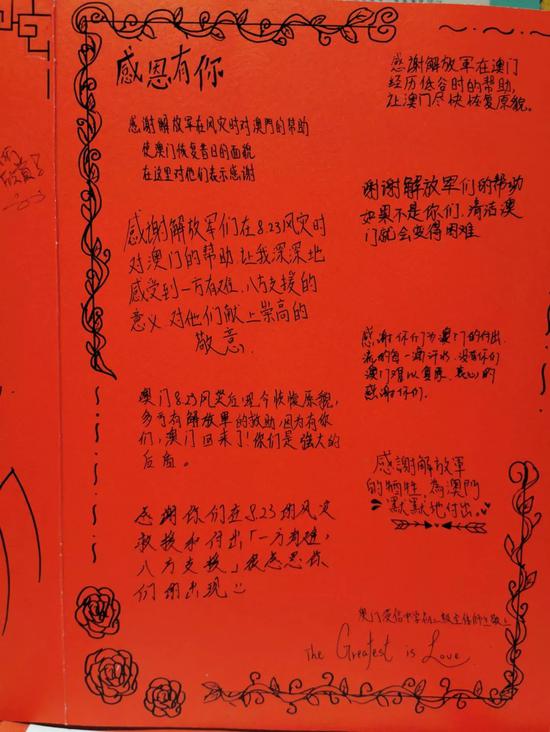 感恩有你
感謝解放军在风灾时对澳門的帮助
使澳门恢复昔日的面貌
在这里对他们表示感谢
感谢解放军们在8.23风灾时
对澳门的帮助 让我深深地
感受到一方有难、八方支援的
意义. 对他们献上崇高的
敬意.
澳门8.23风灾后,现今恢復原貌,
多亏有解放軍的救助,因为有你
们,澳门回来了!你们是強大的
后盾。
感谢你们在8.23的风灾
救援和付出「一方有难,
八方支援」很感恩你
们的出現
感谢解放军在澳门
经历低谷时的帮助,
让澳门尽快恢复原貌。
谢谢解放军们的帮助
如果不是你们,清洁澳
门就会变得困难
感谢你们为澳门的付出
流的每一滴汗水,没有你们
澳门难以复原.衷心的
感谢你们.
感謝解放軍
的犧牲,為澳門
默默地付出。
The Greatest is Love